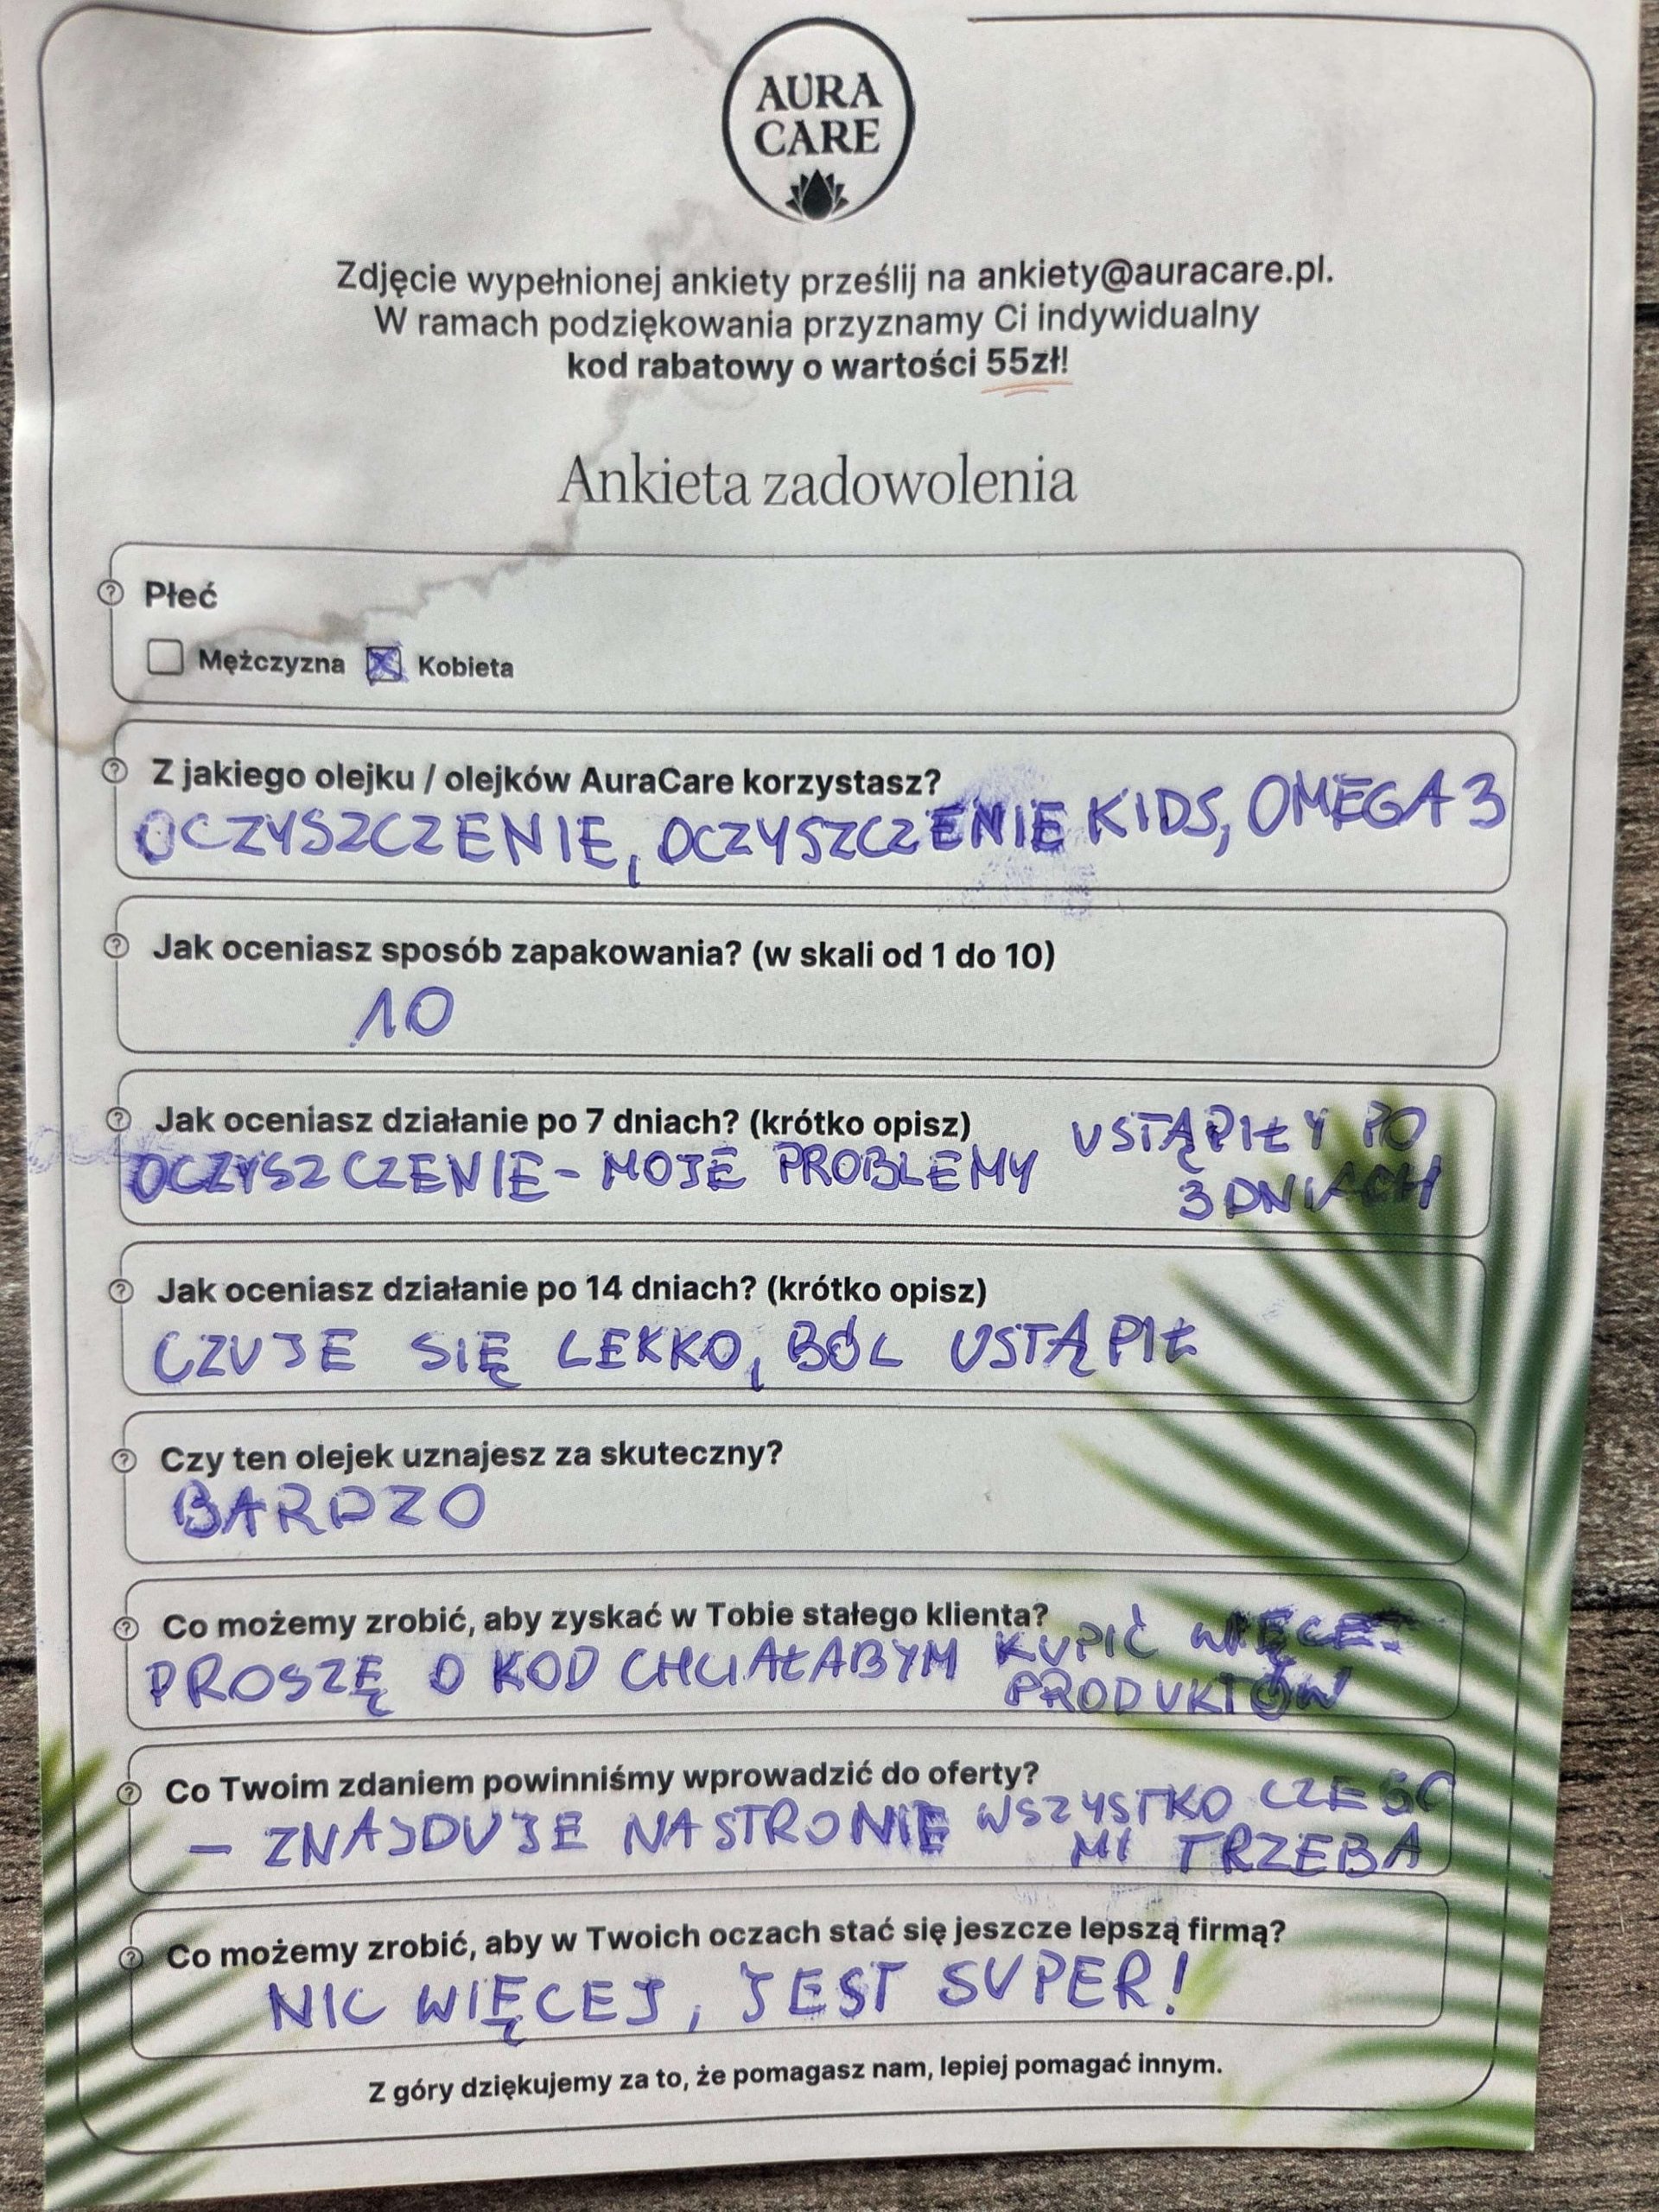 AURA
CARE
Zdjęcie wypełnionej ankiety prześlij na ankiety@auracare.pl.
W ramach podziękowania przyznamy Ci indywidualny
kod rabatowy o wartości 55zł!
Ankieta zadowolenia
Płeć
Mężczyzna Kobieta
Z jakiego olejku / olejków AuraCare korzystasz?
OCZYSZCZENIE, OCZYSZCZENIE KIDS, OMEGA 3
Jak oceniasz sposób zapakowania? (w skali od 1 do 10)
10
Jak oceniasz działanie po 7 dniach? (krótko opisz)
OCZYSZCZENIE - MOJE PROBLEMY USTĄPIŁY PO
3 DNIACH
Jak oceniasz działanie po 14 dniach? (krótko opisz)
CZUJE SIĘ LEKKO, BÓL USTĄPIŁ
Czy ten olejek uznajesz za skuteczny?
BARDZO
Co możemy zrobić, aby zyskać w Tobie stałego klienta?
PROSZĘ O KOD CHCIAŁABYM KUPIĆ WIĘCEJ
PRODUKTÓW
Co Twoim zdaniem powinniśmy wprowadzić do oferty?
- ZNAJDUJE NA STRONIE WSZYSTKO CZEGO
MI TRZEBA
Co możemy zrobić, aby w Twoich oczach stać się jeszcze lepszą firmą?
NIC WIĘCEJ, JEST SUPER!
Z góry dziękujemy za to, że pomagasz nam, lepiej pomagać innym.